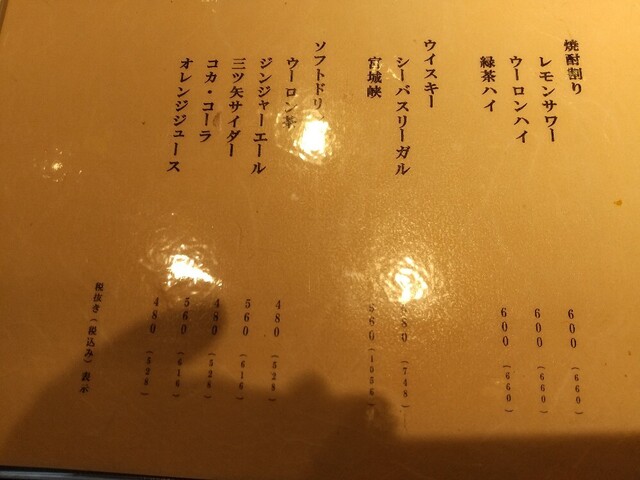 焼酎割り
レモンサワー 600 (660)
ウーロンハイ 600 (660)
緑茶ハイ 600 (660)
ウイスキー
シーバスリーガル 680 (748)
宮城峡 960 (1056)
ソフトドリ
ウーロン茶 480 (528)
ジンジャーエール 560 (616)
三ツ矢サイダー 480 (528)
コカ・コーラ 560 (616)
オレンジジュース 480 (528)
税抜き(税込み)表示